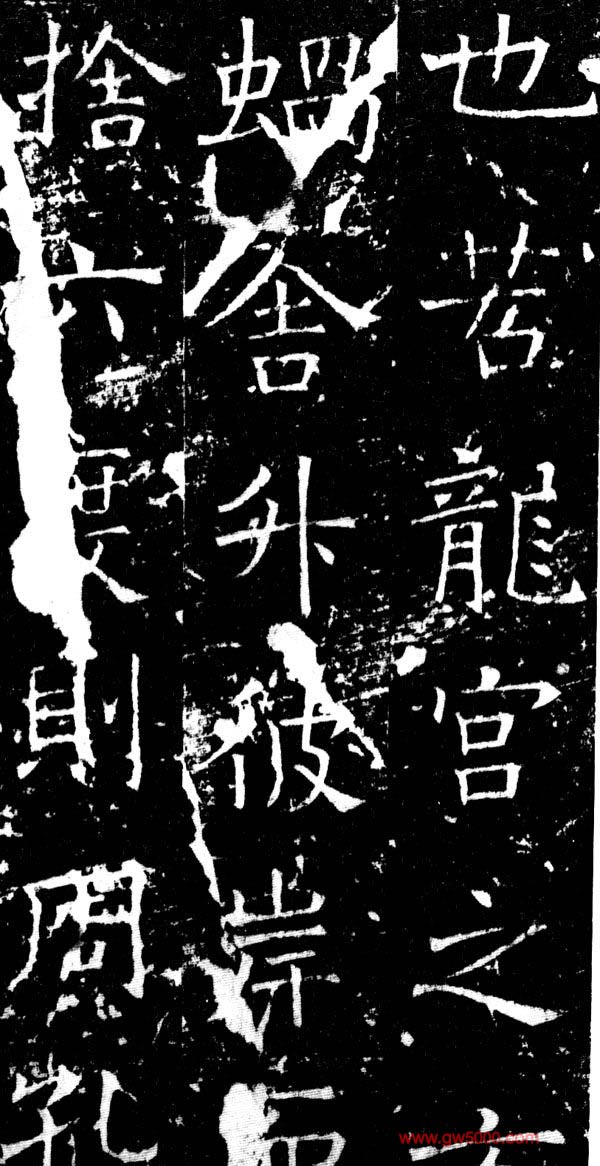 也若龍宮之
蝸舍升彼岸而
捨六度則周孔
www.gw5000.com